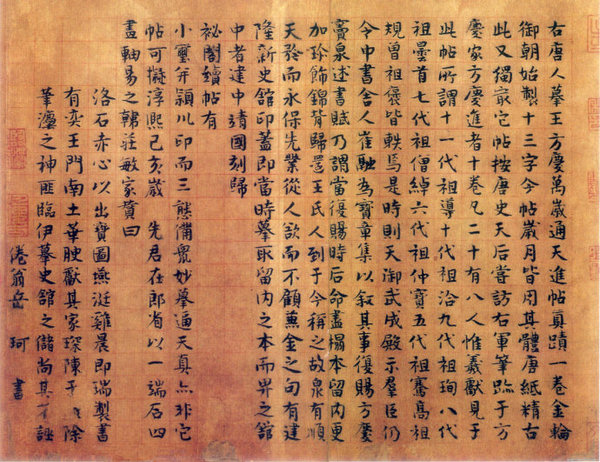 右唐人摹王方慶萬歲通天進帖真蹟一卷金輪
御朝始製十三字今帖歲月皆用其體唐紙精古
此又獨冣它帖按唐史天后嘗訪右軍筆蹟于方
慶家方慶進者十卷凡二十有八人惟羲獻見于
此帖所謂十一代祖導十代祖洽九代祖珣八代
祖曇首七代祖僧綽六代祖仲寶五代祖騫高祖
規曾祖褒皆軼焉是時則天御武成殿示羣臣仍
令中書舍人崔融為寶章集以叙其事復賜方慶
竇泉述書賦乃謂當復賜時后命盡榻本留内更
加珍飾錦背歸還王氏人到于今稱之故泉有順
天矜而永保先業從人欲而不顧兼金之句有建
隆新史舘印蓋即當時摹取留内之本而畀之舘
中者建中靖國刻歸
祕閣續帖有
小璽并潁川印而三熊備衆妙摹逼天真亦非它
帖可擬淳熙己亥歲 先君在郎省以一端石四
畫軸易之韓莊敏家贊曰
洛石赤心以出寶圖燕涎雞晨即瑞製書
有奕王門南土華腴獻其家琛陳于 除
筆灋之神匪臨伊摹史舘之儲尚其不誣
倦翁岳 珂 書